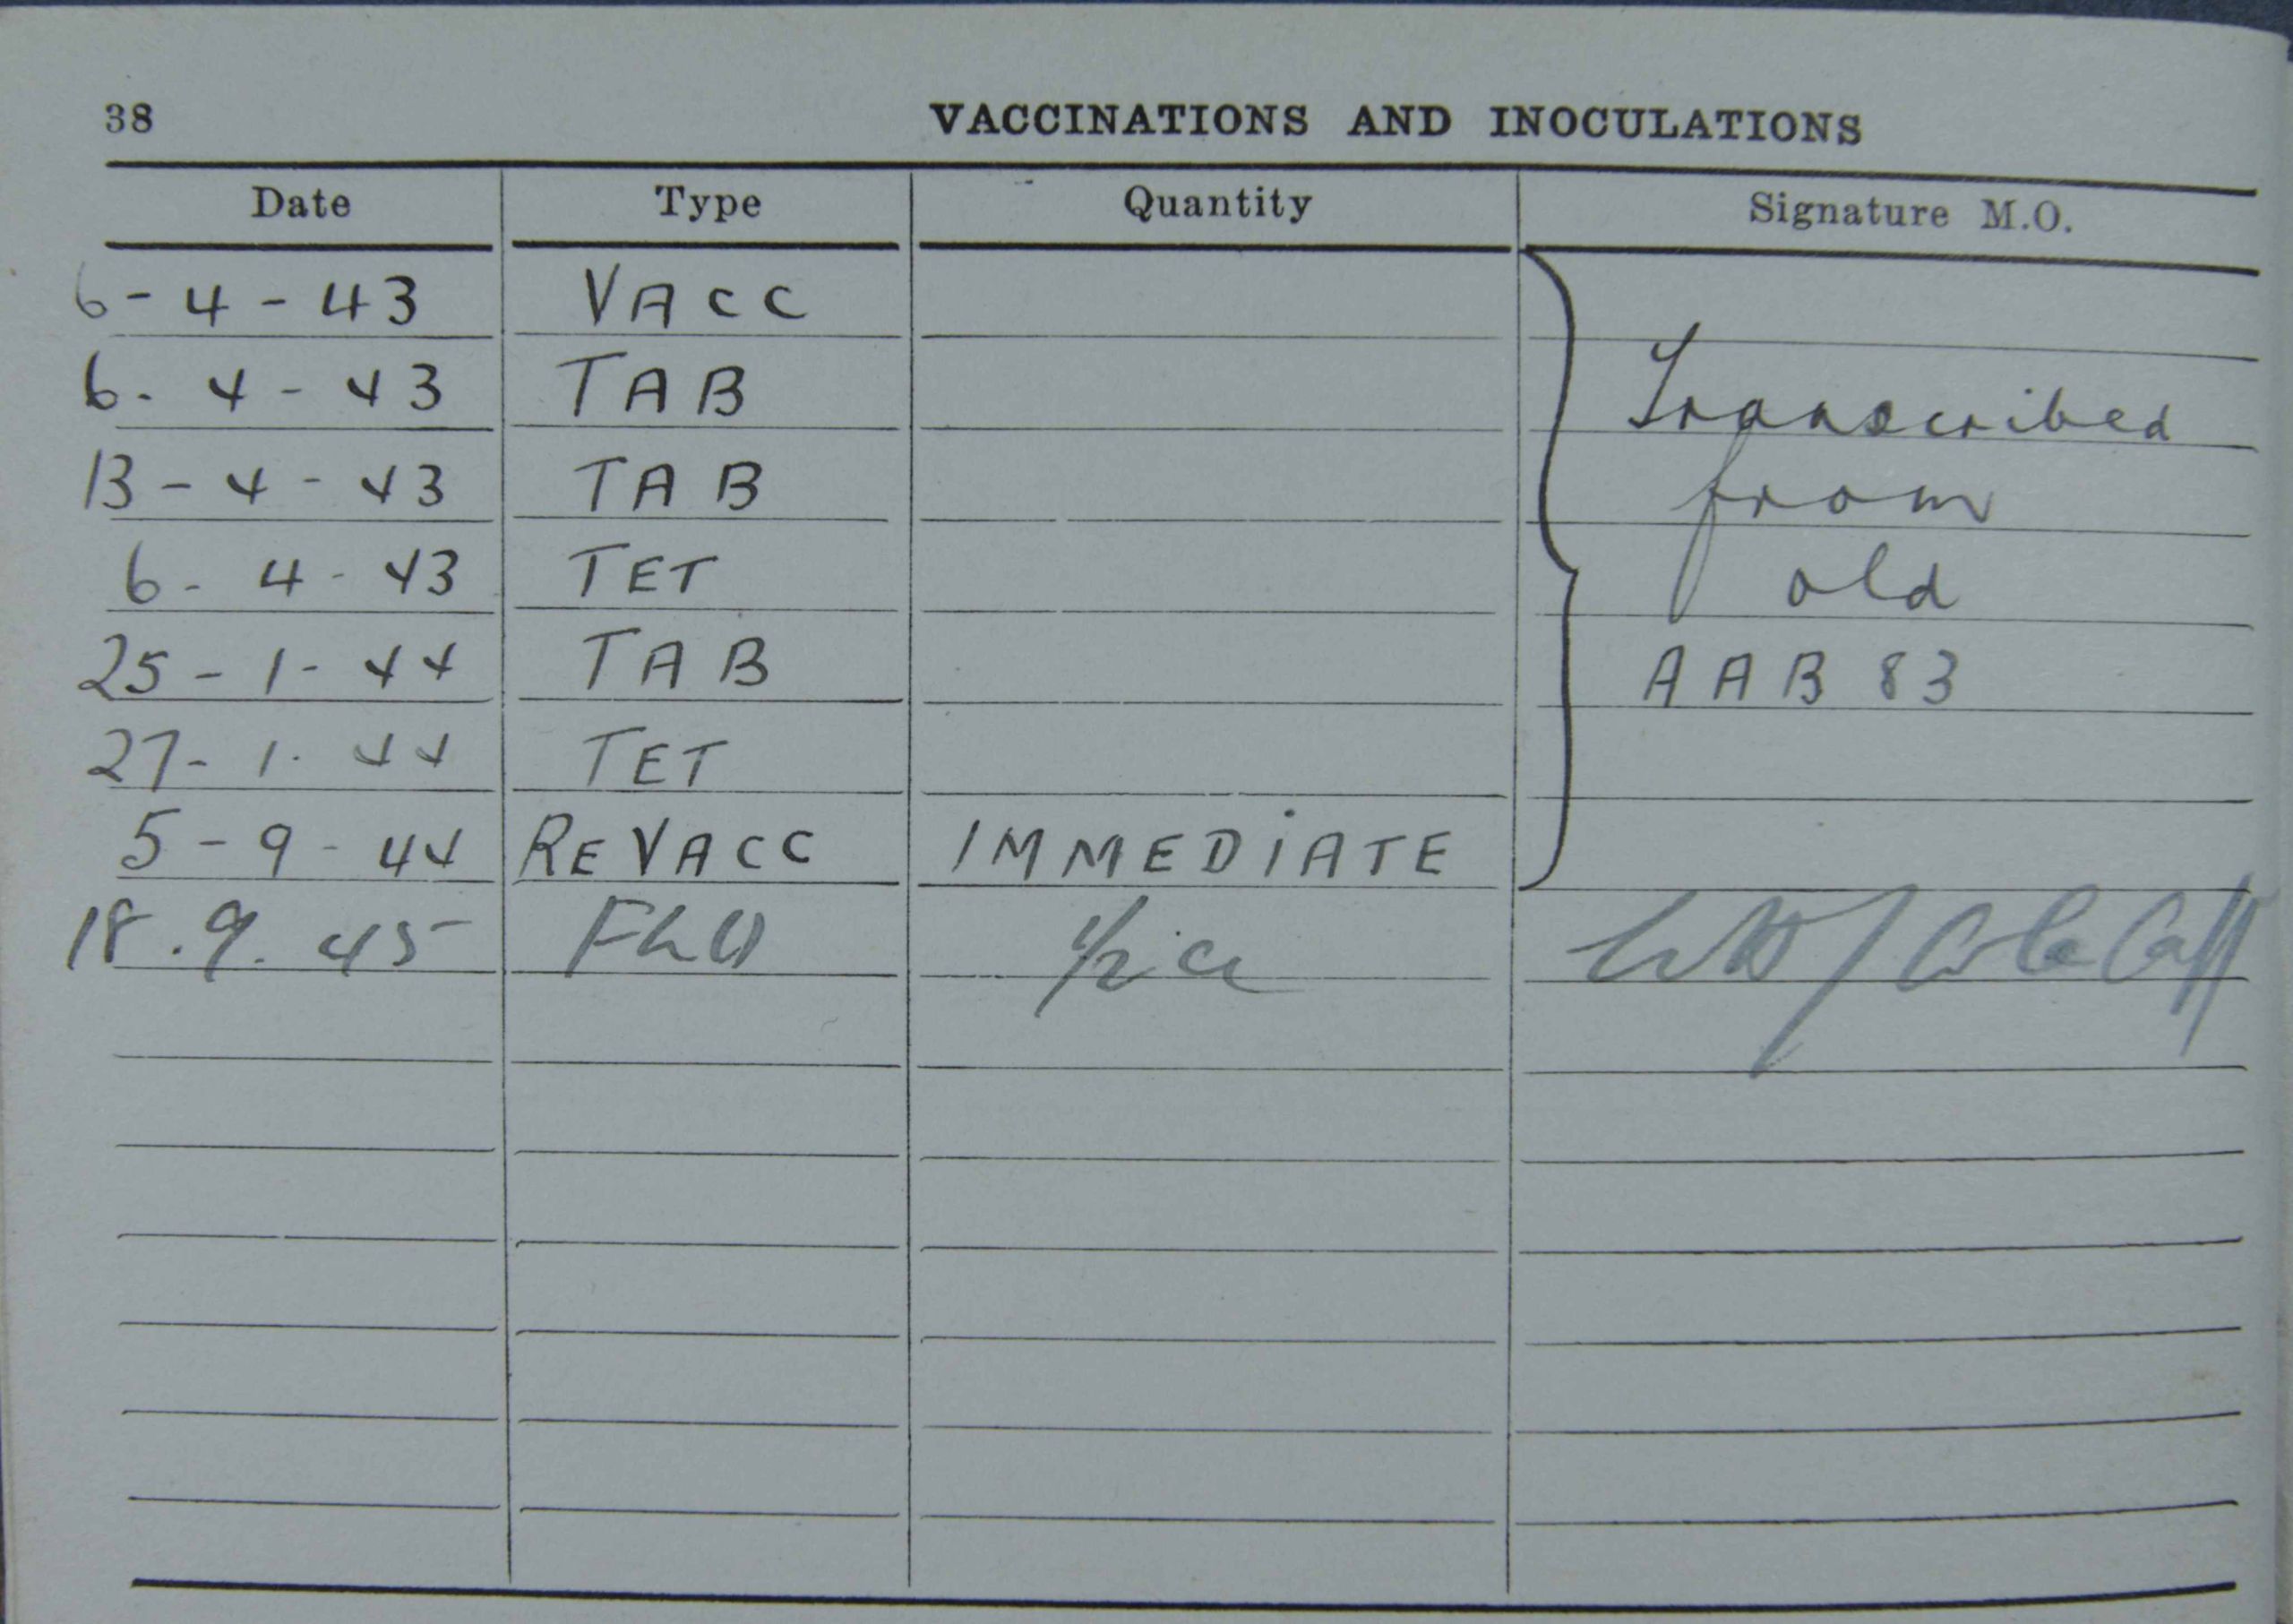 38 VACCINATIONS AND INOCULATIONS
Date Type Quantity Signature M.O.
6-4-43 VACC
6-4-43 TAB Transcribed
13-4-43 TAB from
6-4-43 TET old
25-1-44 TAB AAB 83
27-1-44 TET
5-9-44 REVACC IMMEDIATE
18.9.45 FLU 1/2 cc